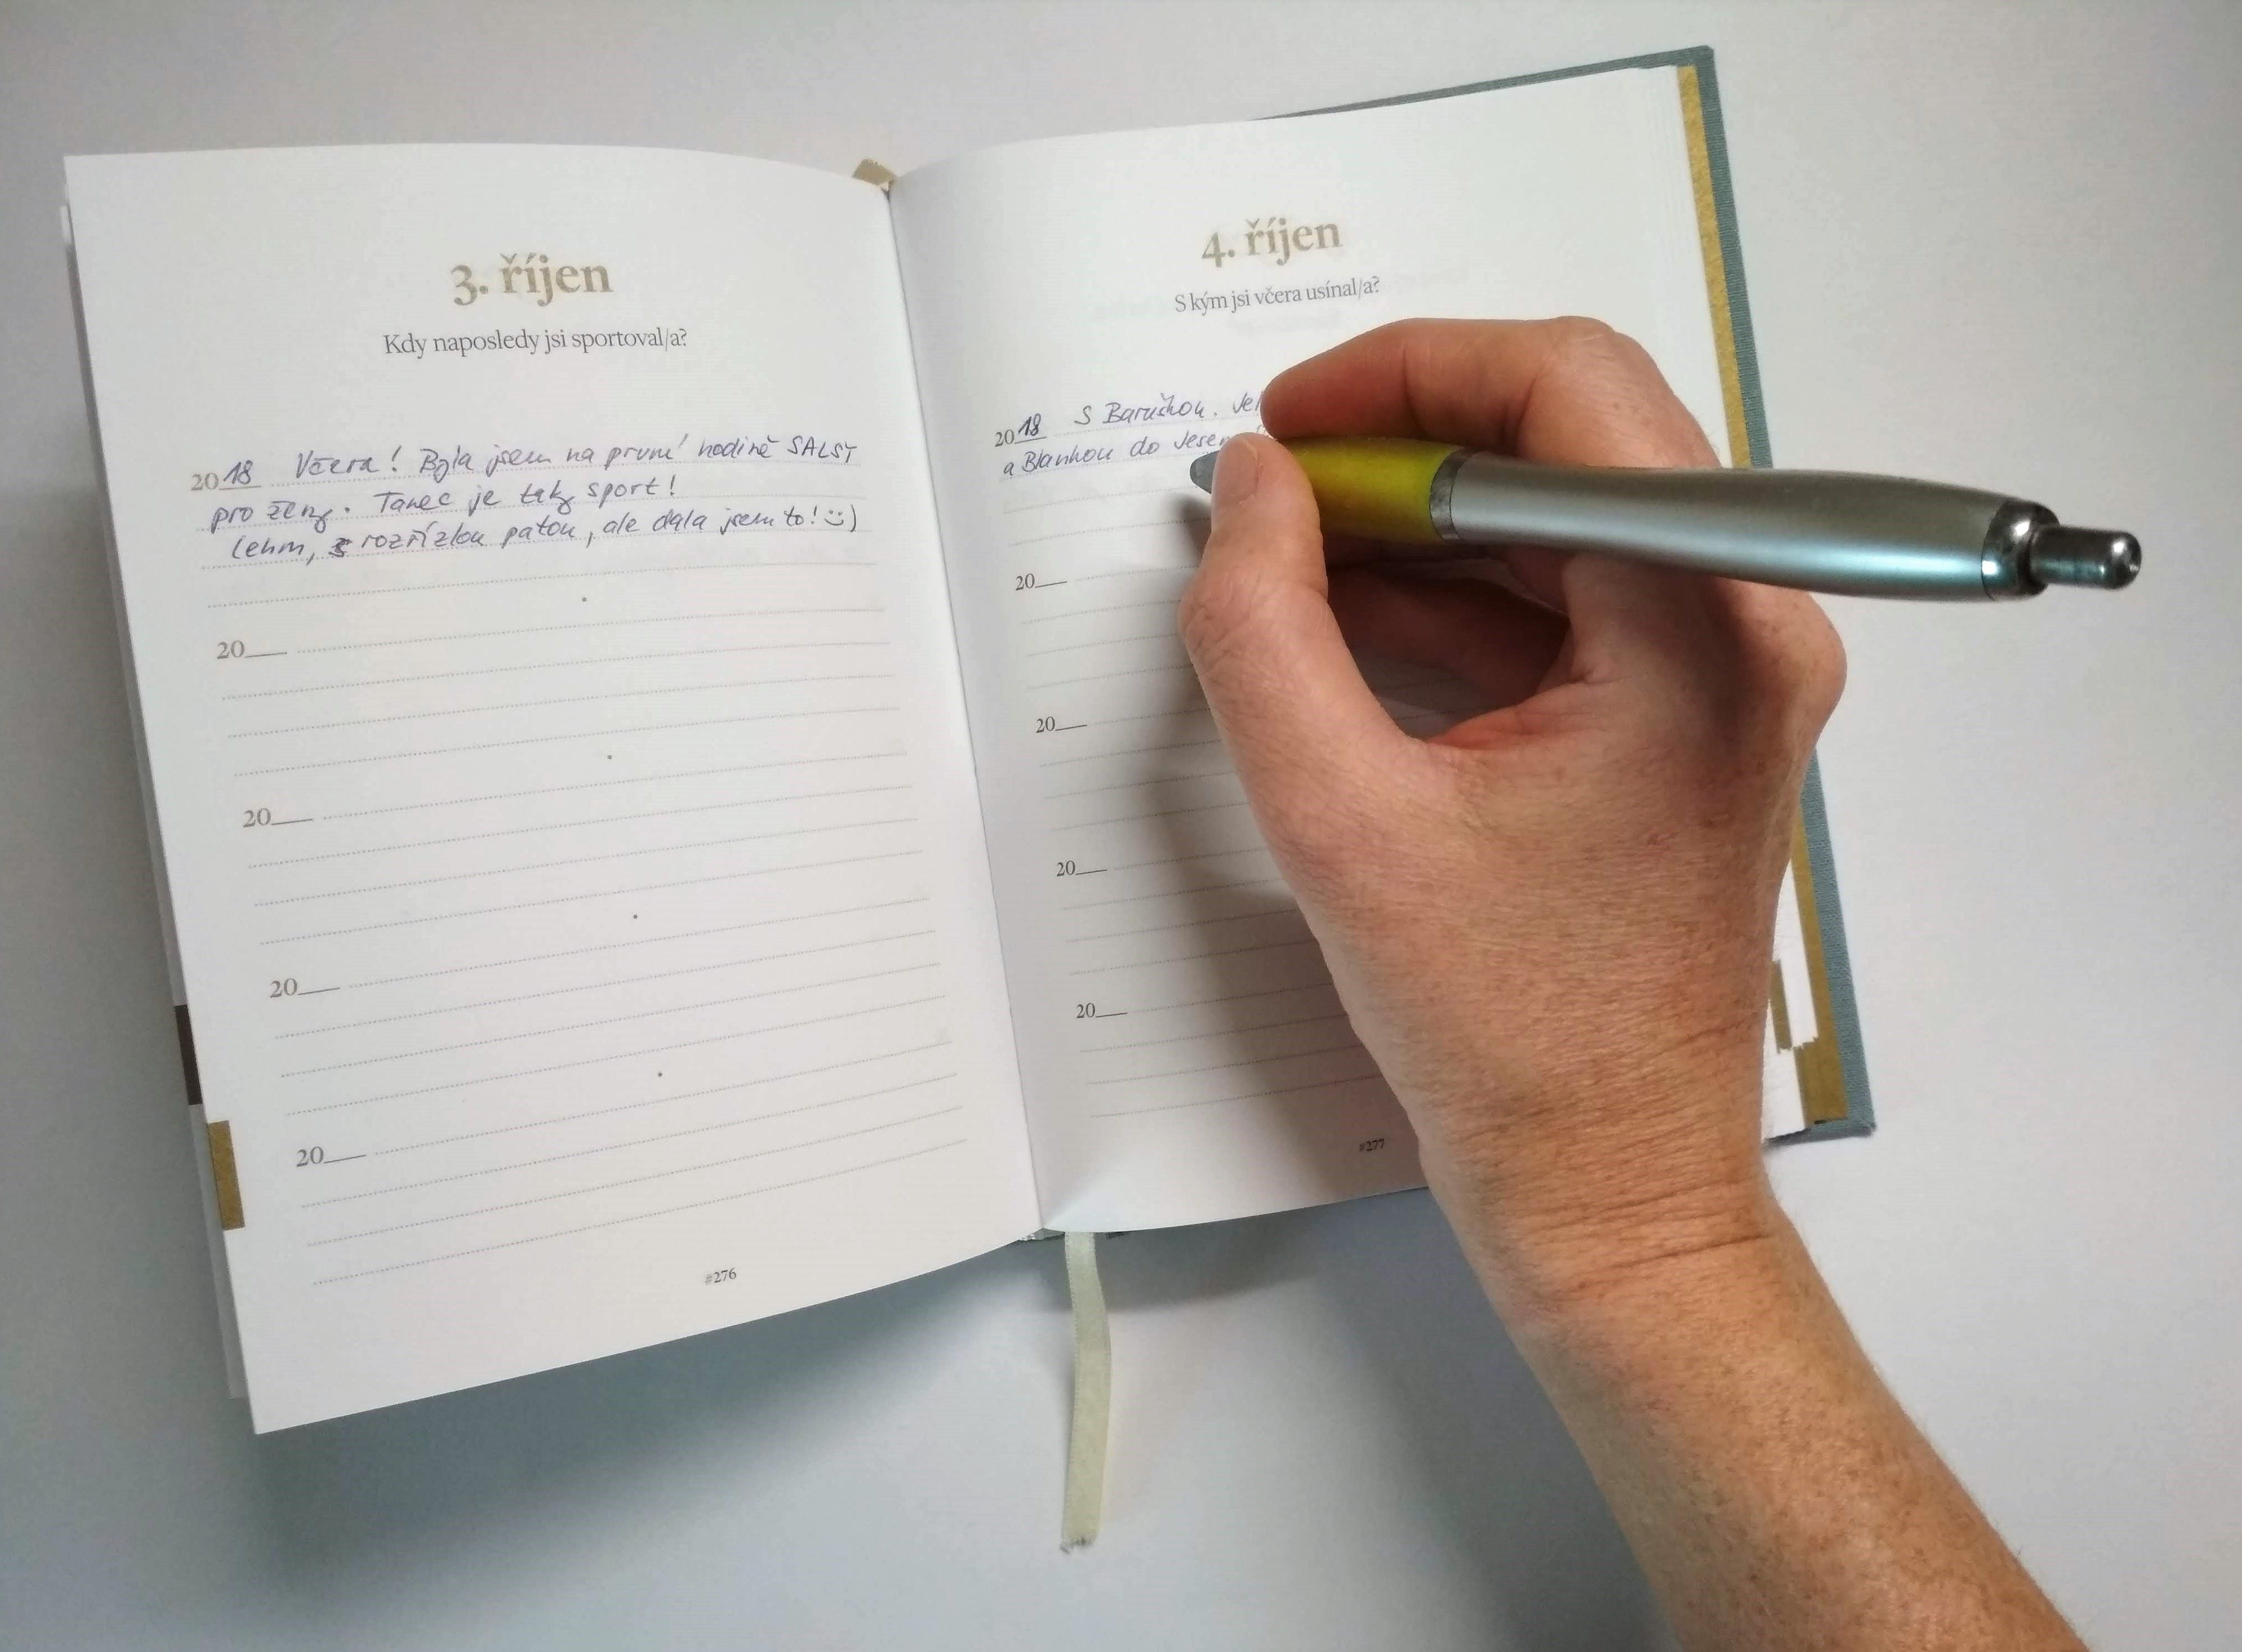 3. říjen
Kdy naposledy jsi sportoval/a?
2018 Včera! Byla jsem na první hodině SALSY
pro ženy. Tanec je taky sport!
(ehm, s rozřízlou patou, ale dala jsem to! :))
20
20
20
20
#276
4. říjen
S kým jsi včera usínal/a?
2018 S Baruškou.
a Blankou do
20
20
20
20
#277